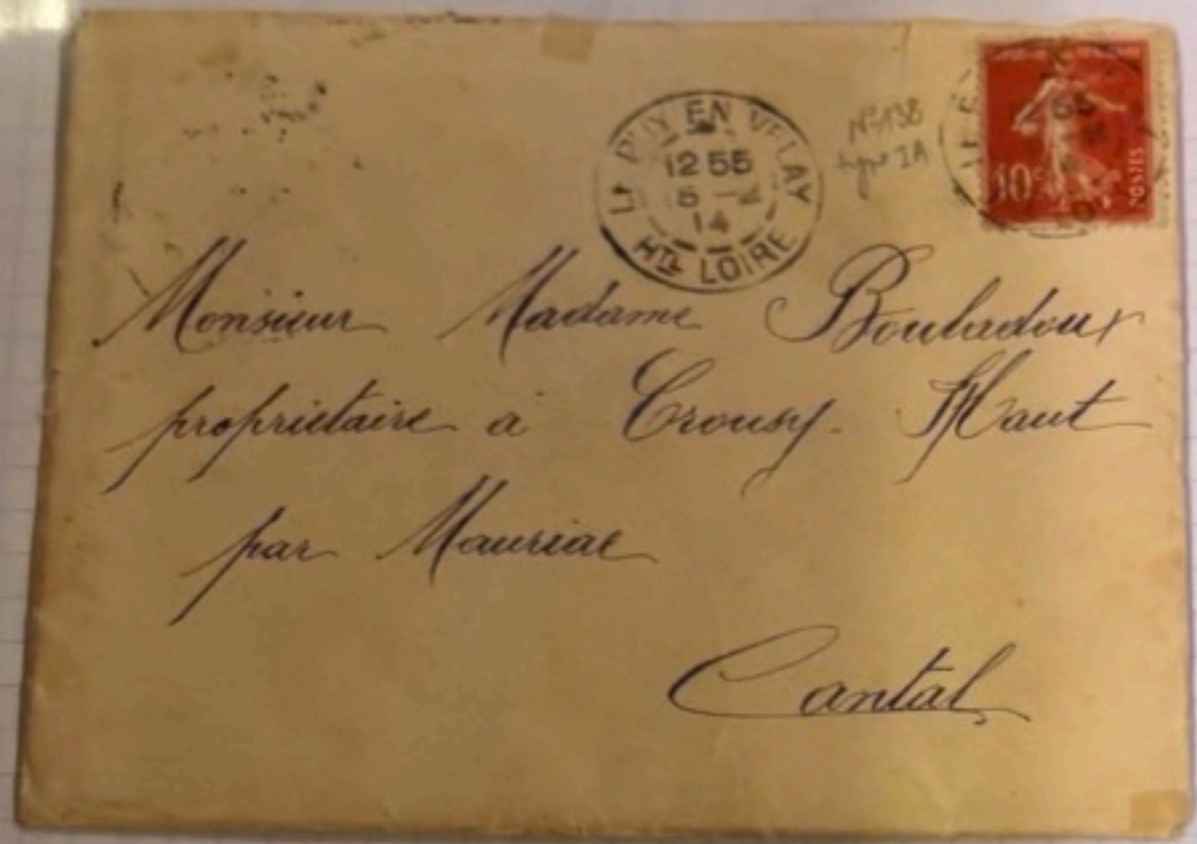 LE PUY EN VELAY
12 55
5 - 14
HTE LOIRE
N° 138
type IA
10c
POSTES
Monsieur Madame Boubadoux
proprietaire à Crousy-Haut
par Mauriac
Cantal